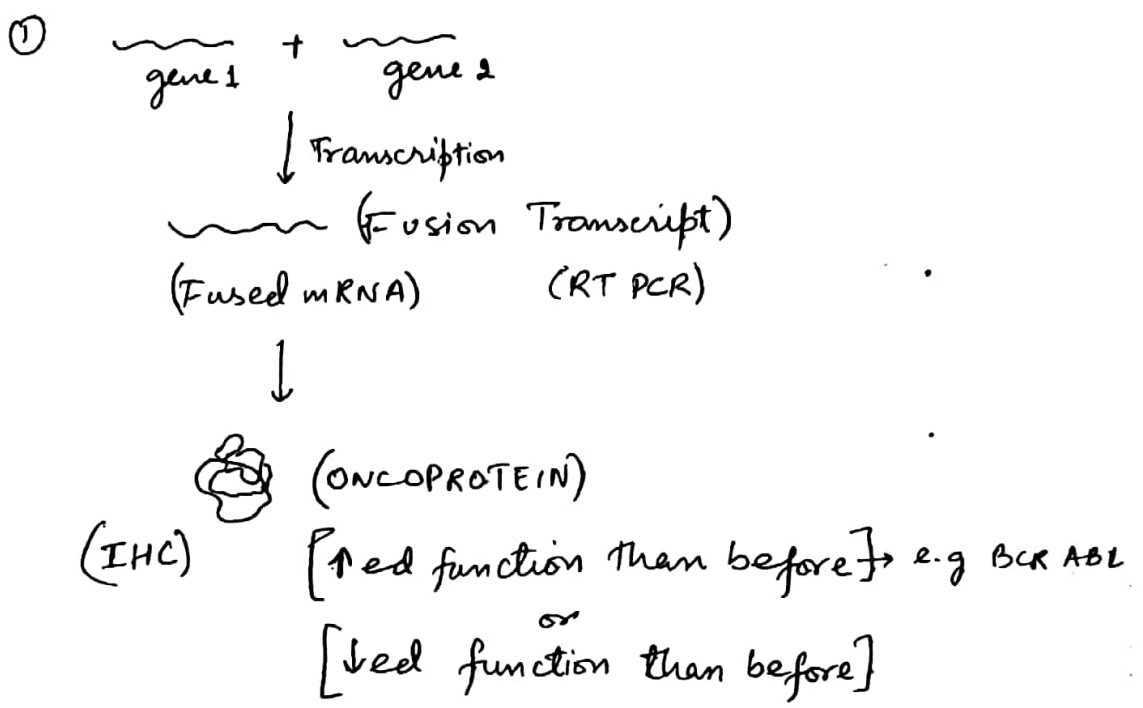 ①
gene 1 + gene 2
↓ Transcription
(Fusion Transcript)
(Fused mRNA) (RT PCR)
↓
(ONCOPROTEIN)
(IHC) [↑ed function than before]→ e.g BCR ABL
or
[↓ed function than before]